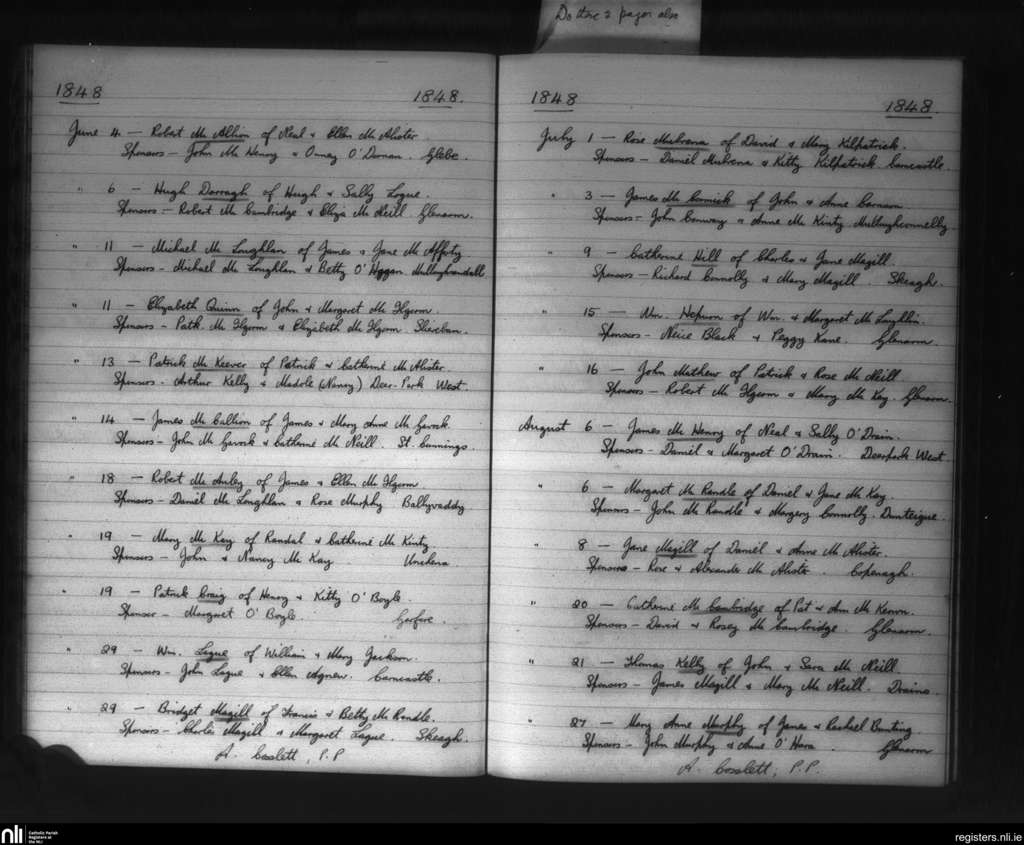 Do these 2 pages also
1848 1848.
June 4. — Robert Mc Allion of Neal & Ellen Mc Alister.
Sponsors — John Mc Henry & Onney O'Dornan. Glebe.
" 6 — Hugh Darragh of Hugh & Sally Logue.
Sponsors — Robert Mc Cambridge & Eliza Mc Neill Glenarm.
" 11 — Michael Mc Loughlan of James & Jane Mc Afferty
Sponsors — Michael Mc Loughlan & Betty O'Haggan.
" 11 — Elizabeth Quinn of John & Margaret Mc Ilgorm.
Sponsors — Patk. Mc Ilgorm & Elizabeth Mc Ilgorm
" 13 — Patrick Mc Keever of Patrick & Catherine Mc Alister
Sponsors — Arthur Kelly & Madole (Nancy) Deer Park West.
" 14 — James Mc Callion of James & Mary Anne Mc Gavock.
Sponsors — John Mc Gavock & Catherine Mc Neill. St. Cunnings.
" 18 — Robert Mc Auley of James & Ellen Mc Ilgorm
Sponsors — Daniel Mc Loughlan & Rose Murphy Ballyvaddy
" 19 — Mary Mc Kay of Randal & Catherine Mc Kinty.
Sponsors — John & Nancy Mc Kay. Unshena
" 19 — Patrick Craig of Henry & Kitty O'Boyle.
Sponsor — Margaret O'Boyle.
" 29 — Wm. Logue of William & Mary Jackson.
Sponsors — John Logue & Ellen Agnew. Carncastle.
" 29 — Bridget Magill of Francis & Betty Mc Randle.
Sponsors — Charles Magill & Margaret Logue. Skeagh.
A. Cosslett, P.P
1848 1848.
July 1 — Rose Mulvena of David & Mary Kilpatrick.
Sponsors — Daniel Mulvena & Kitty Kilpatrick Carncastle.
" 3 — James Mc Cormick of John & Anne Carnam
Sponsors — John Conway & Anne Mc Kinty Mullaghconnelly.
" 9 — Catherine Hill of Charles & Jane Magill.
Sponsors — Richard Connolly & Mary Magill. Skeagh.
" 15 — Wm. Hepurn of Wm. & Margaret Mc Laughlin.
Sponsors — Neice Black & Peggy Kane. Glenarm.
" 16 — John Mathew of Patrick & Rose Mc Neill
Sponsors — Robert Mc Ilgorm & Mary Mc Kay. Glenarm.
August 6 — James Mc Henry of Neal & Sally O'Drain.
Sponsors — Daniel & Margaret O'Drain. Deerpark West.
" 6 — Margaret Mc Randle of Daniel & Jane Mc Kay.
Sponsors — John Mc Randle & Margery Connolly. Dunteigue.
" 8 — Jane Magill of Daniel & Anne Mc Alister.
Sponsors — Rose & Alexander Mc Alister. Copenagh.
" 20 — Catherine Mc Cambridge of Pat & Ann Mc Keown.
Sponsors — David & Rosey Mc Cambridge. Glenarm.
" 21 — Thomas Kelly of John & Sara Mc Neill.
Sponsors — James Magill & Mary Mc Neill. Drains.
" 27 — Mary Anne Murphy of James & Rachael Bunting
Sponsors — John Murphy & Anne O'Hara. Glenarm
A. Cosslett, P.P.
nli Catholic Parish
Registers at
the NLI
registers.nli.ie